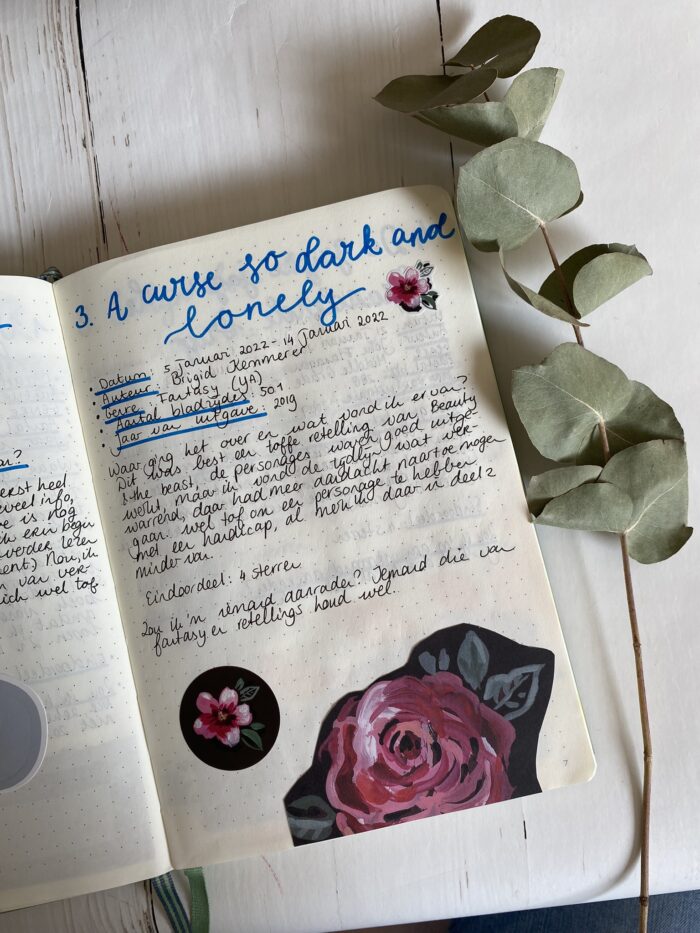 ar?
erst heel
veel info,
e is nog
ch erin begin
verder lezen
ment) Nou, ik
n van ver-
ich wel tof
3. A curse so dark and
lonely
• Datum: 5 Januari 2022 - 14 Januari 2022
• Auteur: Brigid Kemmerer
• Genre: Fantasy (YA)
• Aantal bladzijdes: 501
• Jaar van uitgave: 2019
Waar ging het over en wat vond ik ervan?
Dit was best een toffe retelling van Beauty
& the beast, de personages waren goed uitge-
werkt, maar ik vond de tijdlijn wat ver-
warrend, daar had meer aandacht naartoe mogen
gaan. Wel tof om een personage te hebben
met een handicap, al merk ik daar in deel 2
minder van.
Eindoordeel: 4 sterren
Zou ik 'm iemand aanraden? Iemand die van
fantasy en retellings houd wel.
7